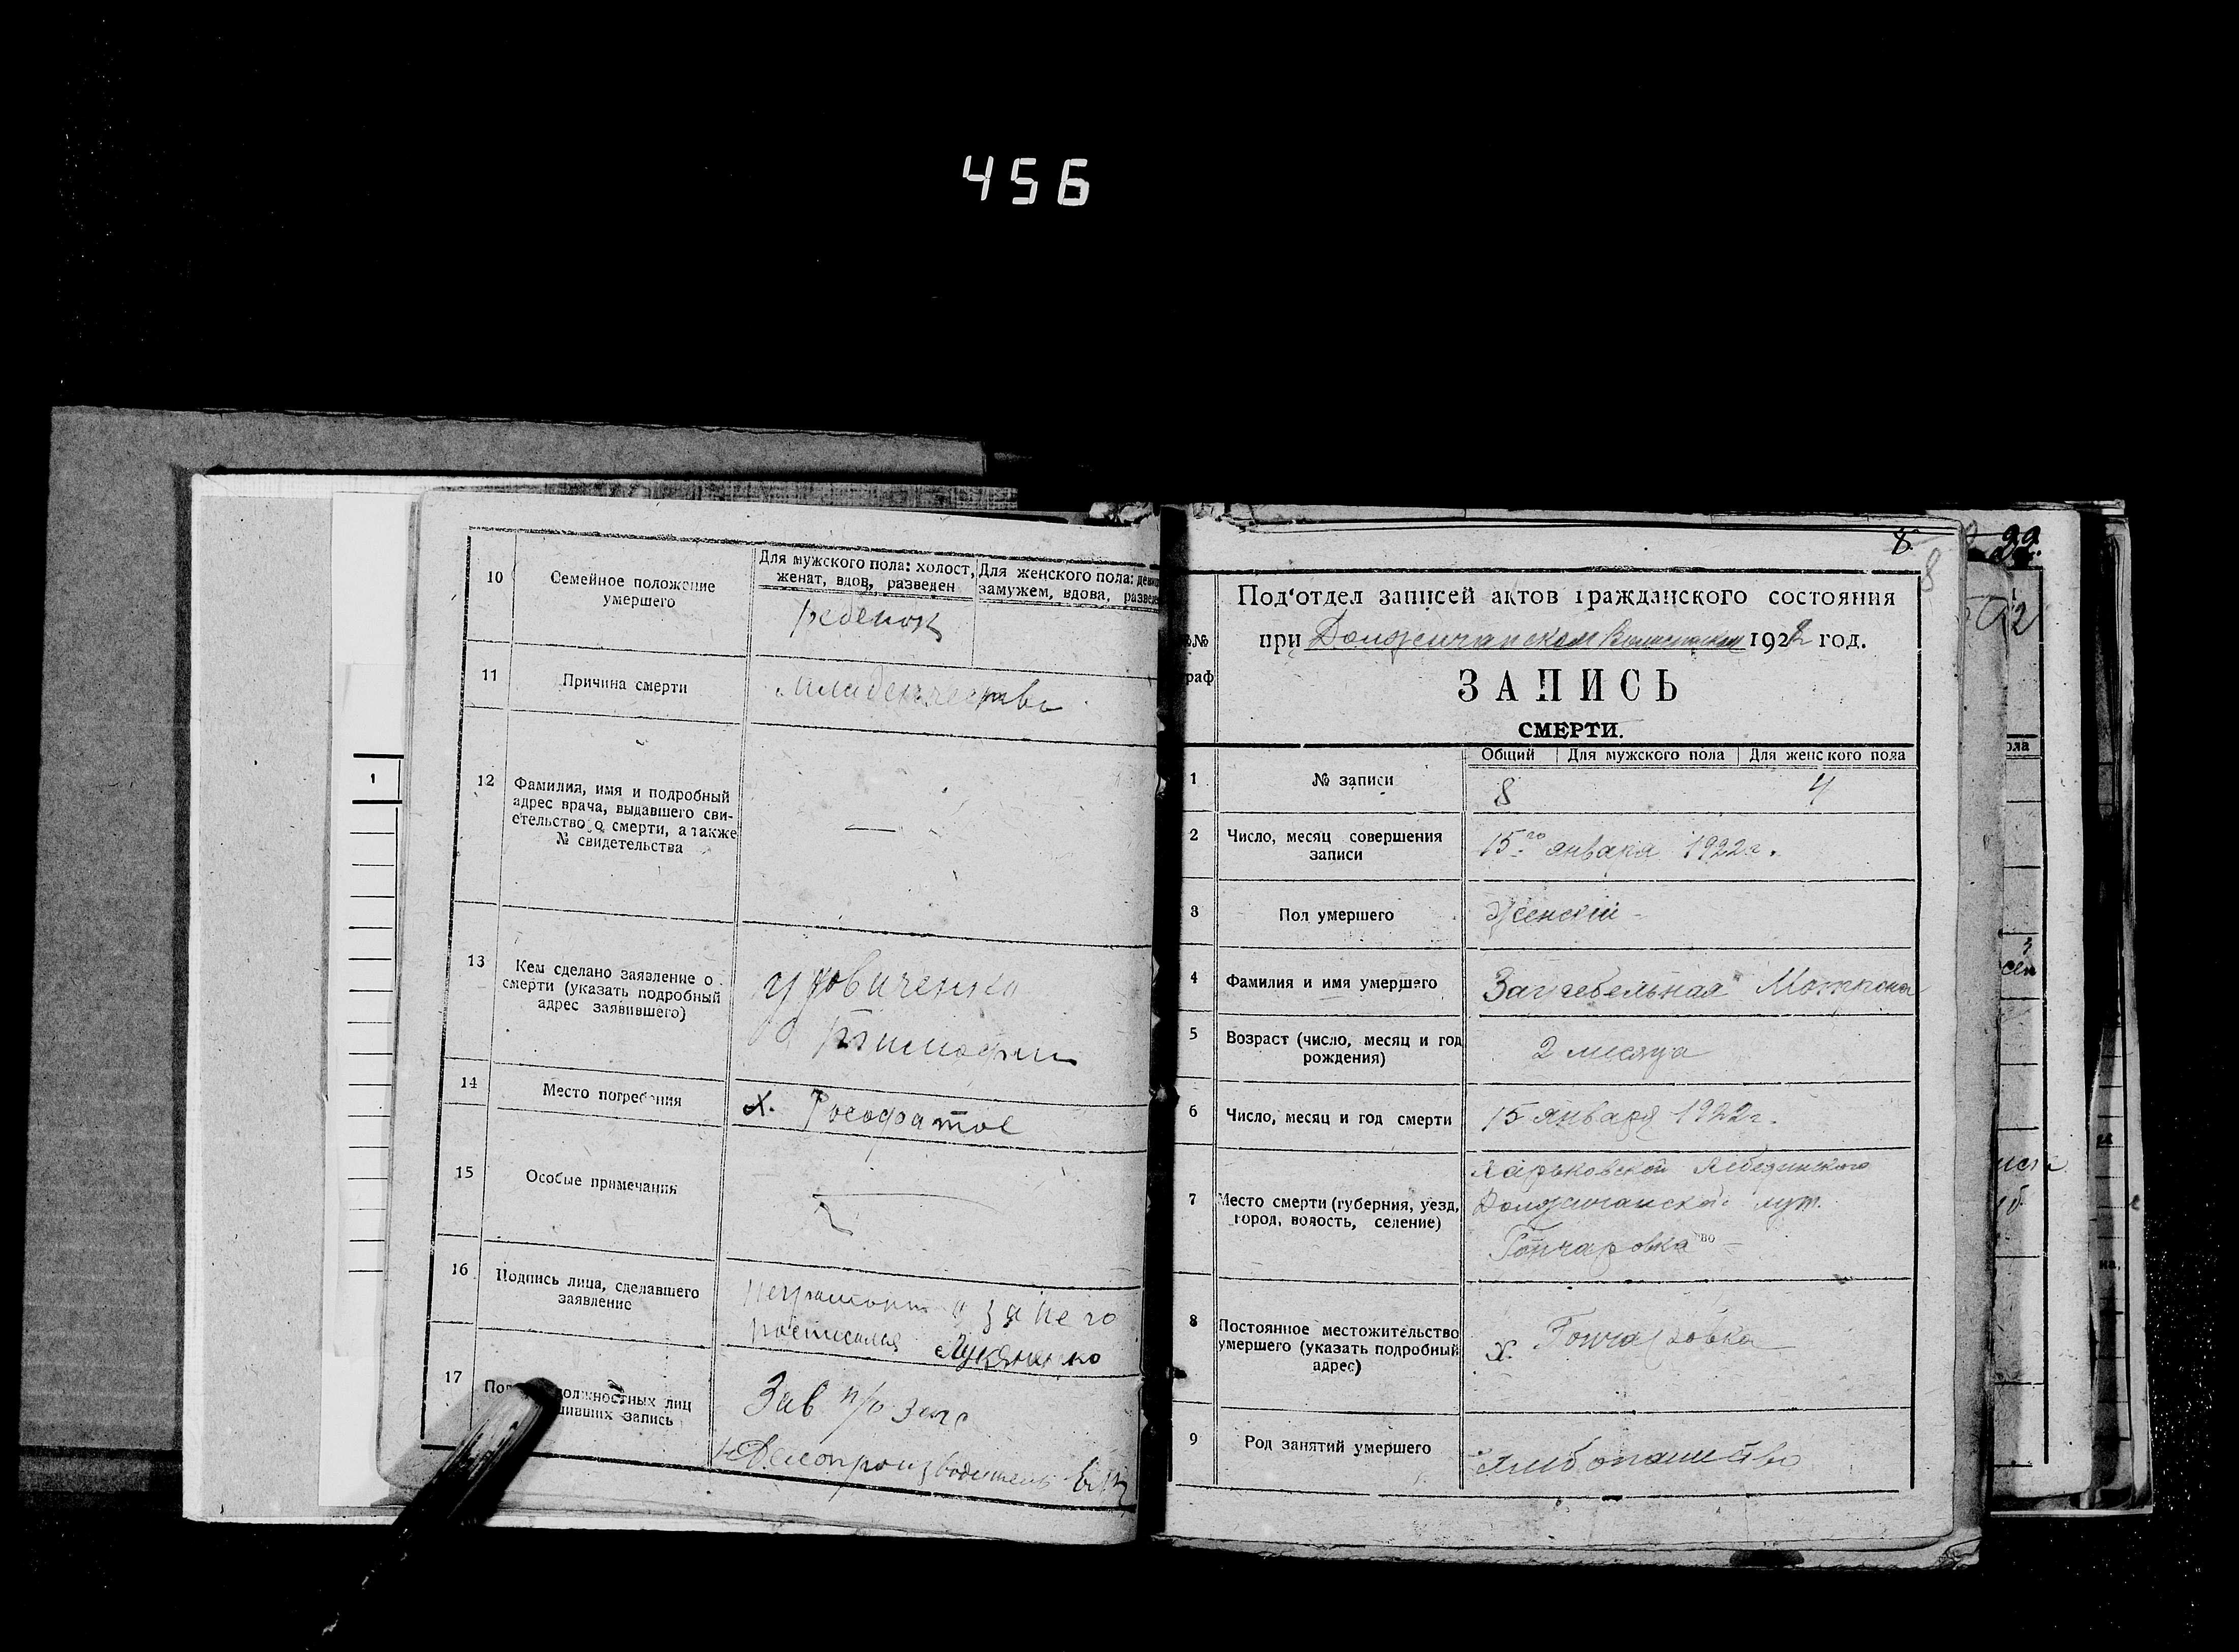 456
10
Семейное положение
умершего
Для мужского пола: холост,
женат, вдов, разведен
Для женского пола:
замужем, вдова,
ребенок
11
Причина смерти
младенчество
12
Фамилия, имя и подробный
адрес врача, выдавшего сви-
етельство о смерти, а также
№ свидетельства
—
13
Кем сделано заявление о
смерти (указать подробный
адрес заявившего)
Удовиченко
Тимофей
14
Место погребения
х.
15
Особые примечания
16
Подпись лица, сделавшего
заявление
неграмотн а за него
росписался Лукяненко
17
должностных лиц
запись
Зав п/о загс
Делопроизводитель
1
8
8
Под'отдел записей актов гражданского состояния
при 1922 год.
№№
раф
ЗАПИСЬ
СМЕРТИ.
Общий Для мужского пола Для женского пола
1
№ записи
8 4
2
Число, месяц совершения
записи
15го января 1922г.
3
Пол умершего
Женскій
4
Фамилия и имя умершего
Загребельная
5
Возраст (число, месяц и год
рождения)
2 месяца
6
Число, месяц и год смерти
15 января 1922г.
7
Место смерти (губерния, уезд,
город, волость, селение)
Харьковской Лебединского
хут.
Гончаровка
8
Постоянное местожительство
умершего (указать подробный
адрес)
х. Гончаровка
9
Род занятий умершего
хлебопашество